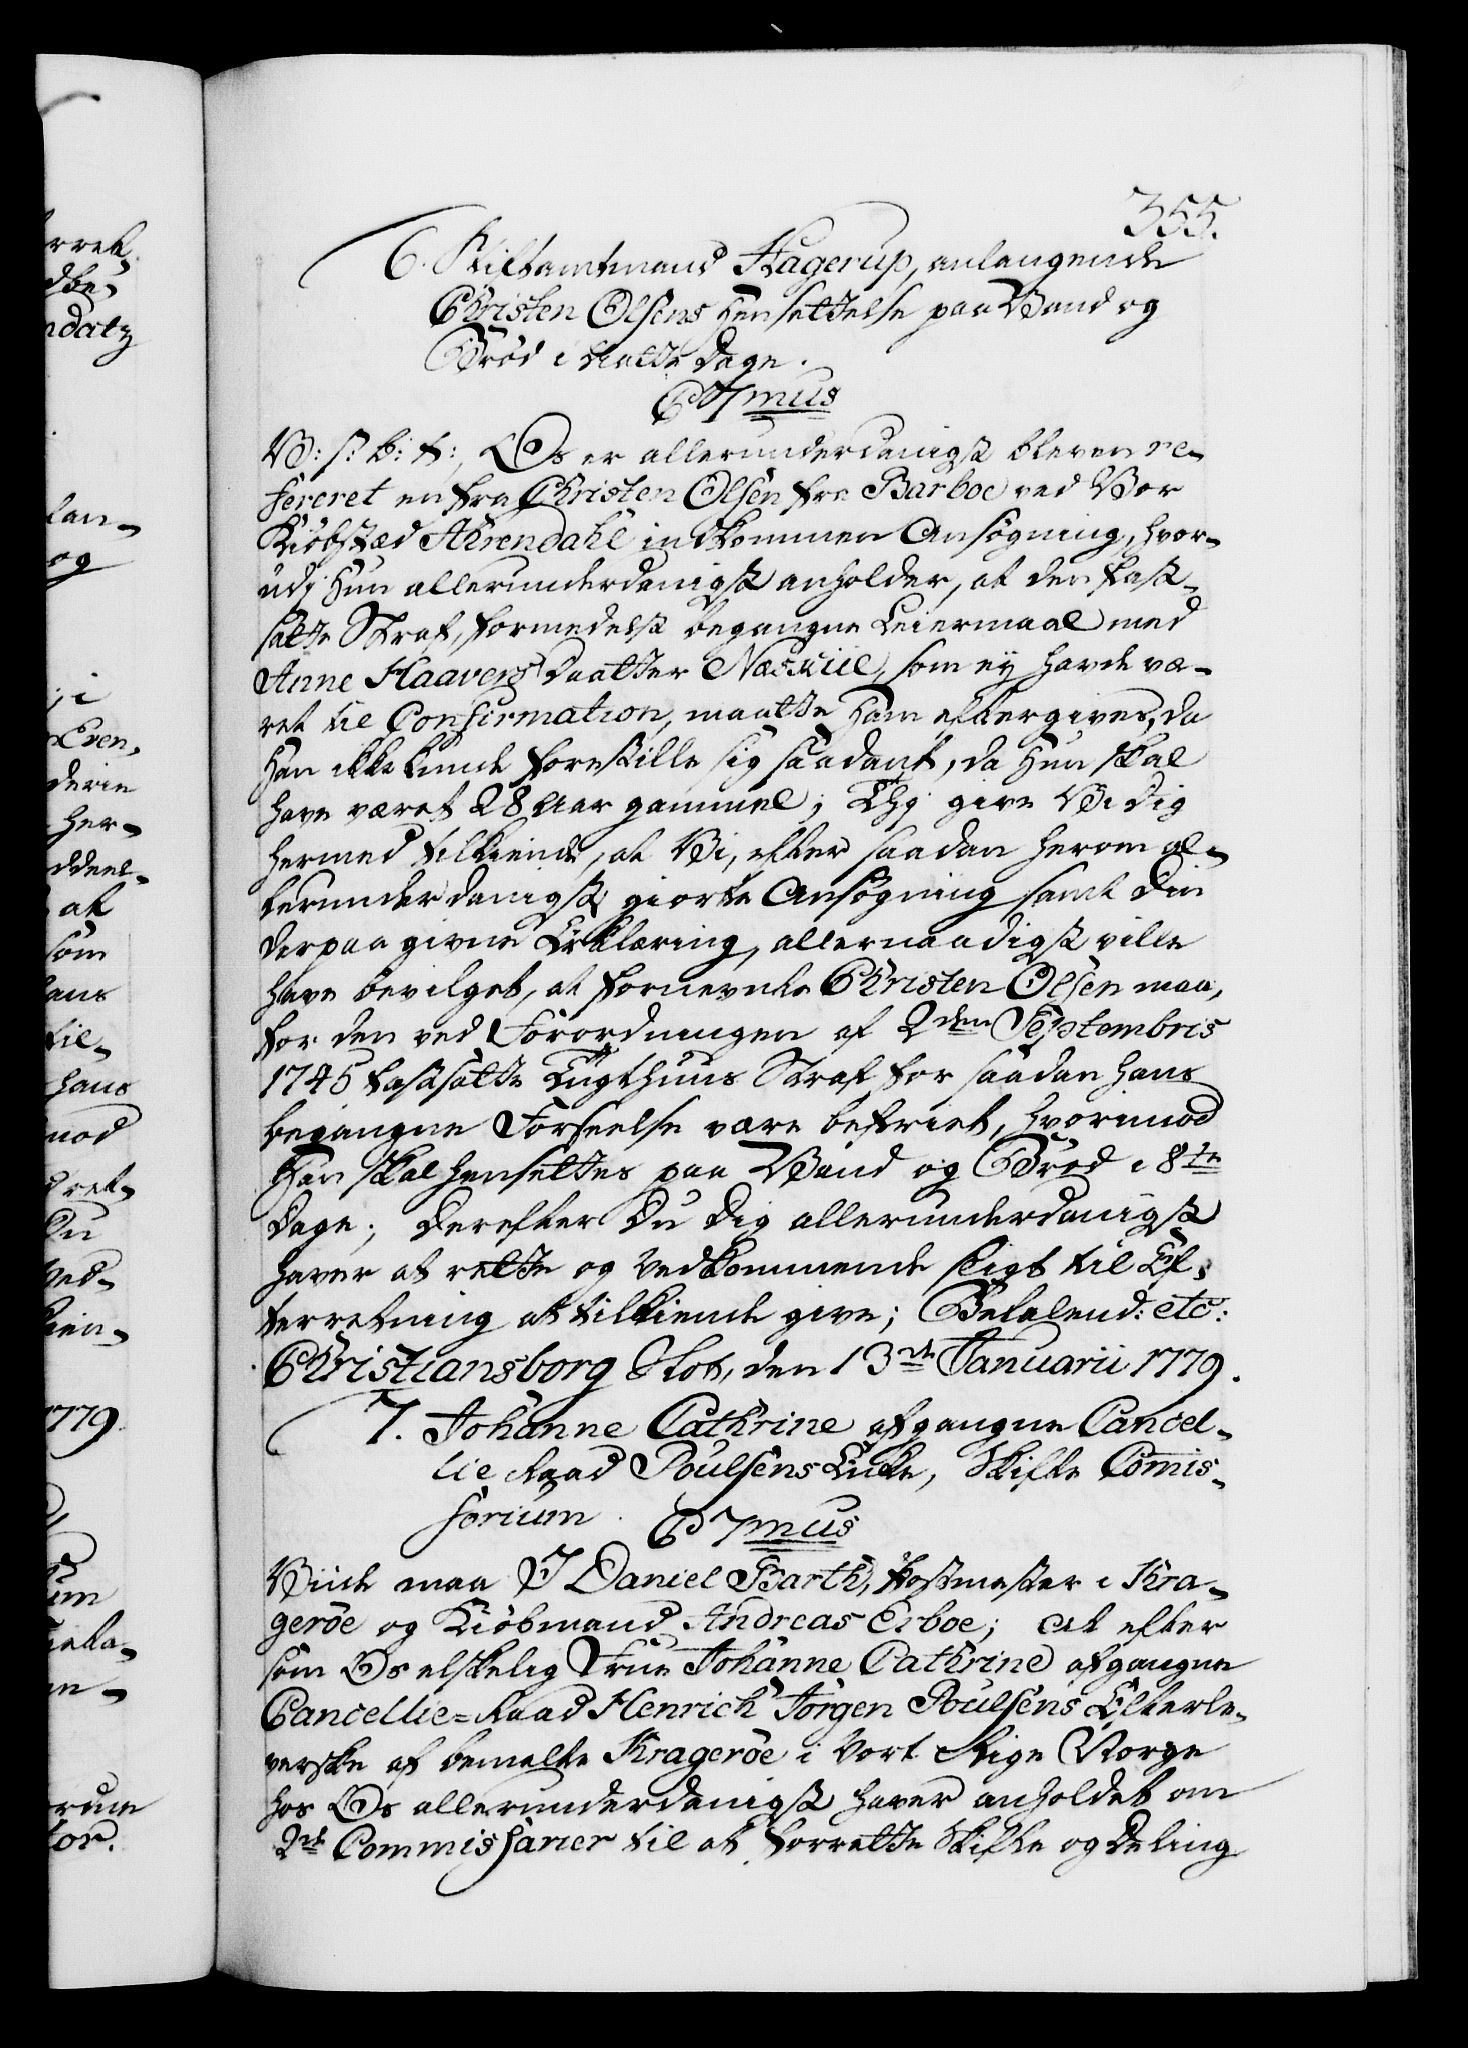 355.
6. Stiftamtmand Hagerup, anlangende
Christen Olsens hensettelse paa Vand og
Brød i Aatte Dage.
C 7mus
V: s: b: t:, Os er allerunderdanigst bleven re-
fereret en fra Christen Olsen fra Barboe ved Vor
Kiøbstæd Ahrendahl indkommen Ansøgning, hvor-
udj hun allerunderdanigst anholder, at den fast-
satte Straf, formedelst begangne Leiermaal med
Anne Haavers Daatter Næskiil, som ey havde væ-
ret til Confirmation, maatte ham eftergives, da
han ikke kunde forestille sig saadant, da hun skal
have været 28 Aar gammel; Thj give Vi dig
hermed tilkiende, at Vi, efter saadan herom al-
lerunderdanigst giorte Ansøgning samt Din
derpaa givne Erklæring, allernaadigst ville
have bevilget, at fornevnte Christen Olsen maa,
for den ved Forordningen af 2den Septembris
1745 fastsatte Tugthuus Straf for saadan hans
begangne Forseelse være befriet, hvorimod
han skal hensettes paa Vand og Brød i 8te
Dage; Derefter Du dig allerunderdanigst
haver at rette og Vedkommende sligt til Ef-
terretning at tilkiende give; Befalend: etc:
Christiansborg Slot, den 13de Januarii 1779.
7. Johanne Cathrine afgangne Cancel-
lie Raad Poulsens Enke, Skifte Comis-
sorium. C 7mus
Viide maa I Daniel Barth, Postmester i Kra-
gerøe og Kiøbmand Andreas Erboe; At efter
som Os elskelig Frue Johanne Cathrine afgangne
Cancellie-Raad Henrich Jørgen Poulsens Efterle-
verske af bemelte Kragerøe i Vort Rige Norge
hos Os allerunderdanigst haver anholdet om
2de Commissarier til at forrette Skifte og Deeling